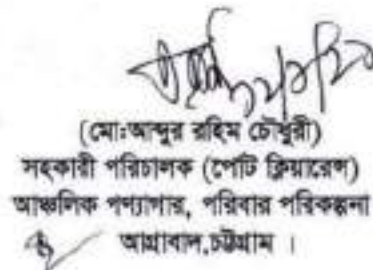 (মোঃআব্দুর রহিম চৌধুরী)
সহকারী পরিচালক (পোর্ট ক্লিয়ারেন্স)
আঞ্চলিক পণ্যাগার, পরিবার পরিকল্পনা
আগ্রাবাদ,চট্টগ্রাম ।